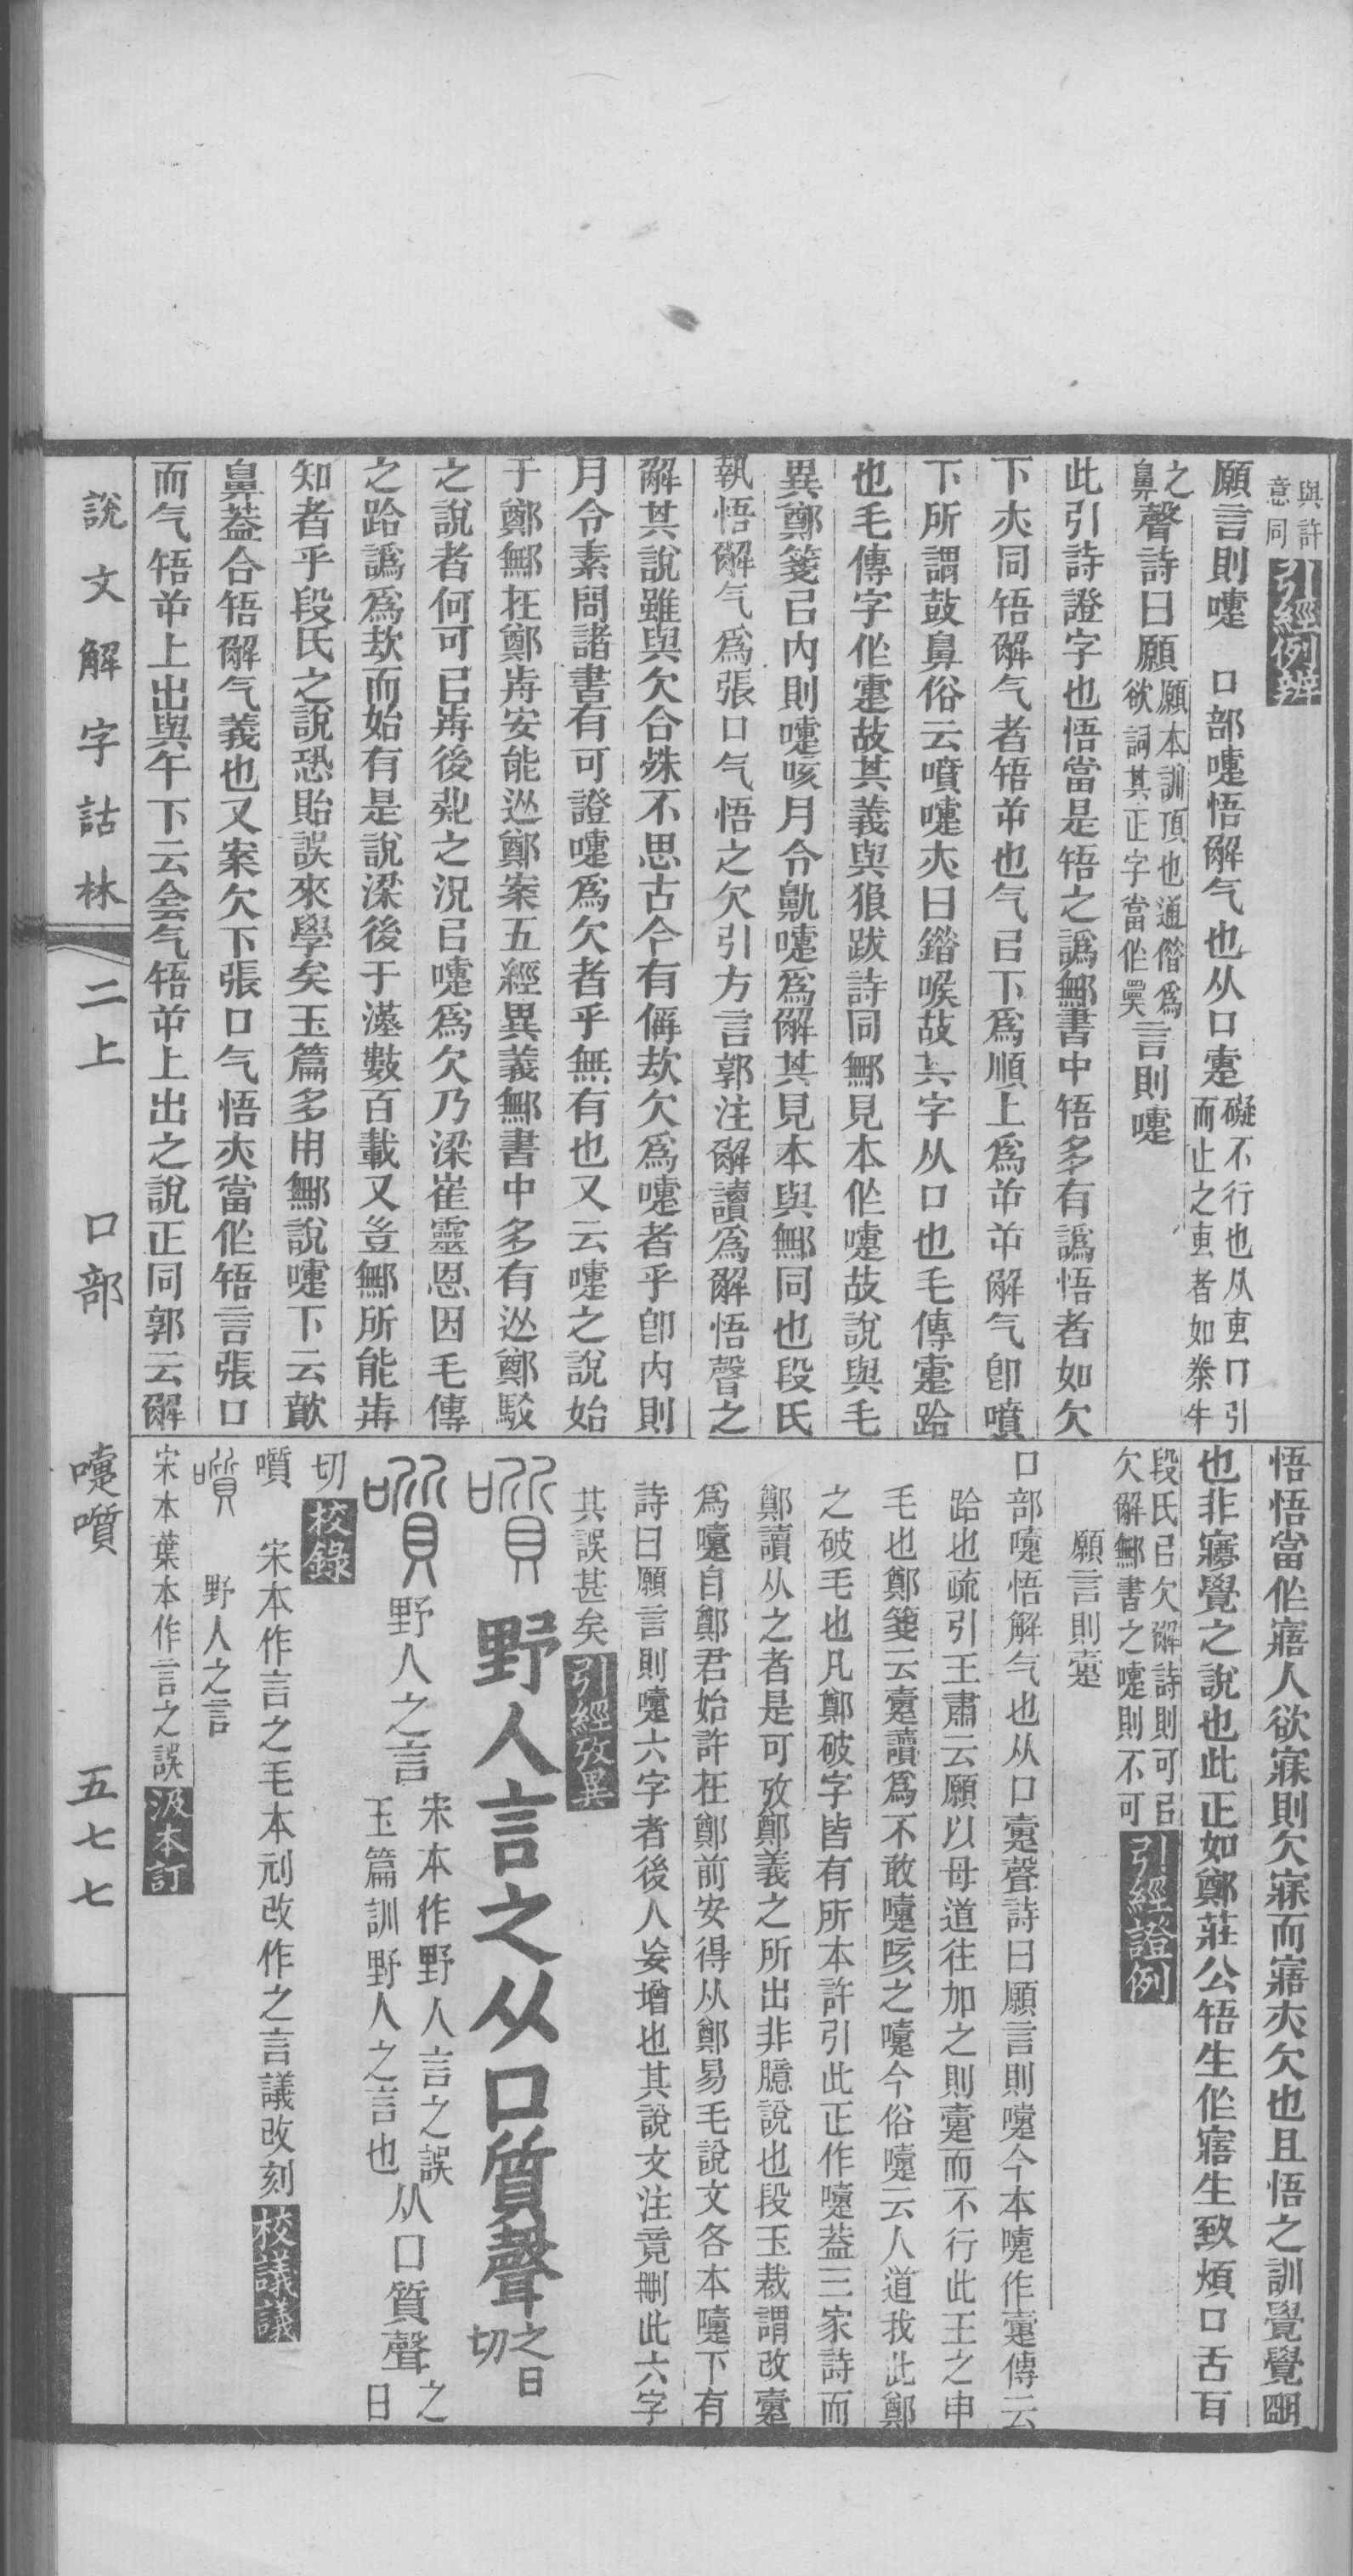 與許
意同引經例辨
願言則嚏　口部嚏悟解气也从口疐礙不行也从叀冂引
而止之叀者如叀牛
之鼻聲詩曰願願本訓頂也通僭爲
欲詞其正字當作㬎言則嚏
此引詩證字也悟當是啎之譌鄦書中啎多有譌悟者如欠
下亦同啎解气者啎屰也气㠯下爲順上爲屰屰解气卽噴
下所謂鼓鼻俗云噴嚏亦曰鎝㗋故其字从口也毛傳疐跲
也毛傳字作疐故其義與狼跋詩同鄦見本作嚏故說與毛
異鄭箋㠯內則嚏咳月令鼽嚏爲解其見本與鄦同也段氏
執悟解气爲張口气悟之欠引方言郭注解讀爲解悟聲之
解其說雖與欠合殊不思古今有偁欯欠爲嚏者乎卽內則
月令素問諸書有可證嚏爲欠者乎無有也又云嚏之說始
于鄭鄦在鄭歬安能从鄭案五經異義鄦書中多有从鄭駁
之說者何可㠯歬後㧖之況㠯嚏爲欠乃梁崔靈恩因毛傳
之跲譌爲欯而始有是說梁後于漢數百載又豈鄦所能歬
知者乎段氏之說恐貽誤來學矣玉篇多用鄦說嚏下云歕
鼻葢合啎解气義也又案欠下張口气悟亦當作啎言張口
而气啎屰上出與午下云侌气啎屰上出之說正同郭云解
悟悟當作寤人欲寐則欠寐而寤亦欠也且悟之訓覺覺朙
也非㝱覺之說也此正如鄭莊公啎生作寤生致煩口舌百
段氏㠯欠解詩則可㠯
欠解鄦書之嚏則不可引經證例
願言則疐
口部嚏悟解气也从口疐聲詩曰願言則嚏今本嚏作疐傳云
跲也疏引王肅云願以母道往加之則疐而不行此王之申
毛也鄭箋云疐讀爲不敢嚏咳之嚏今俗嚏云人道我此鄭
之破毛也凡鄭破字皆有所本許引此正作嚏葢三家詩而
鄭讀从之者是可攷鄭義之所出非臆說也段玉裁謂改疐
爲嚏自鄭君始許在鄭前安得从鄭易毛說文各本嚏下有
詩曰願言則嚏六字者後人妄增也其說文注竟刪此六字
其誤甚矣引經攷異
噴野人言之从口質聲之日
切
噴野人之言宋本作野人言之誤
玉篇訓野人之言也从口質聲之日
切校錄
噴　宋本作言之毛本剜改作之言議改刻校議議
噴　野人之言
宋本葉本作言之誤汲本訂
說文解字詁林
二上　口部　嚏噴
五七七